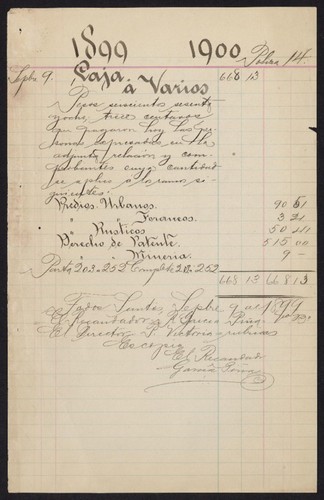 1899 1900 Poliza 14.
Sepbre 9. Caja á Varios 668 13
Pesos seiscientos sesenta
y ocho, trece centavos
que pagaron hoy las per
sonas espresadas en la
adjunta relacion y com
probantes cuya cantidad
se aplica á los ramos si
guientes:
Predios Urbanos. 90 61
" Foraneos 3 21
" Rusticos 50 41
Derecho de Patente. 515 00
" " Mineria. 9 –
Parts 203 = 252 Complete 2 252
668 13 668 13
Sepbre 9 de 1899
El Recaudador
El Director Victoria rubricas
Es copia
El Recaudador
García